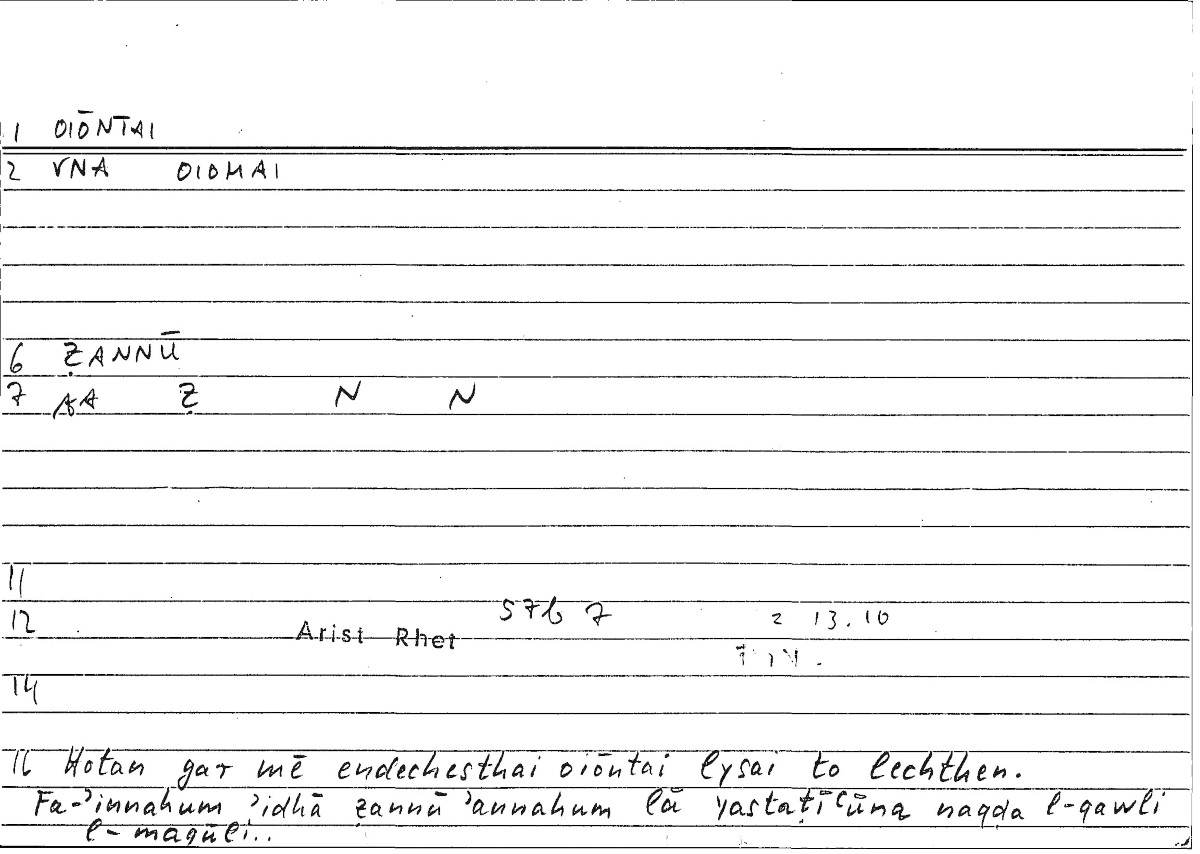 1 OIŌNTAI
2 VNA OIOMAI
6 ẒANNŪ
7 AA Ẓ N N
11
12 Arist Rhet 57b 7 2 13.10
14
16 Hotan gar mē endechesthai oiōntai lysai to lechthen.
Fa-ʾinnahum ʾidhā ẓannū ʾannahum lā yastaṭīʿūna naqḍa l-qawli
l-maqūli..